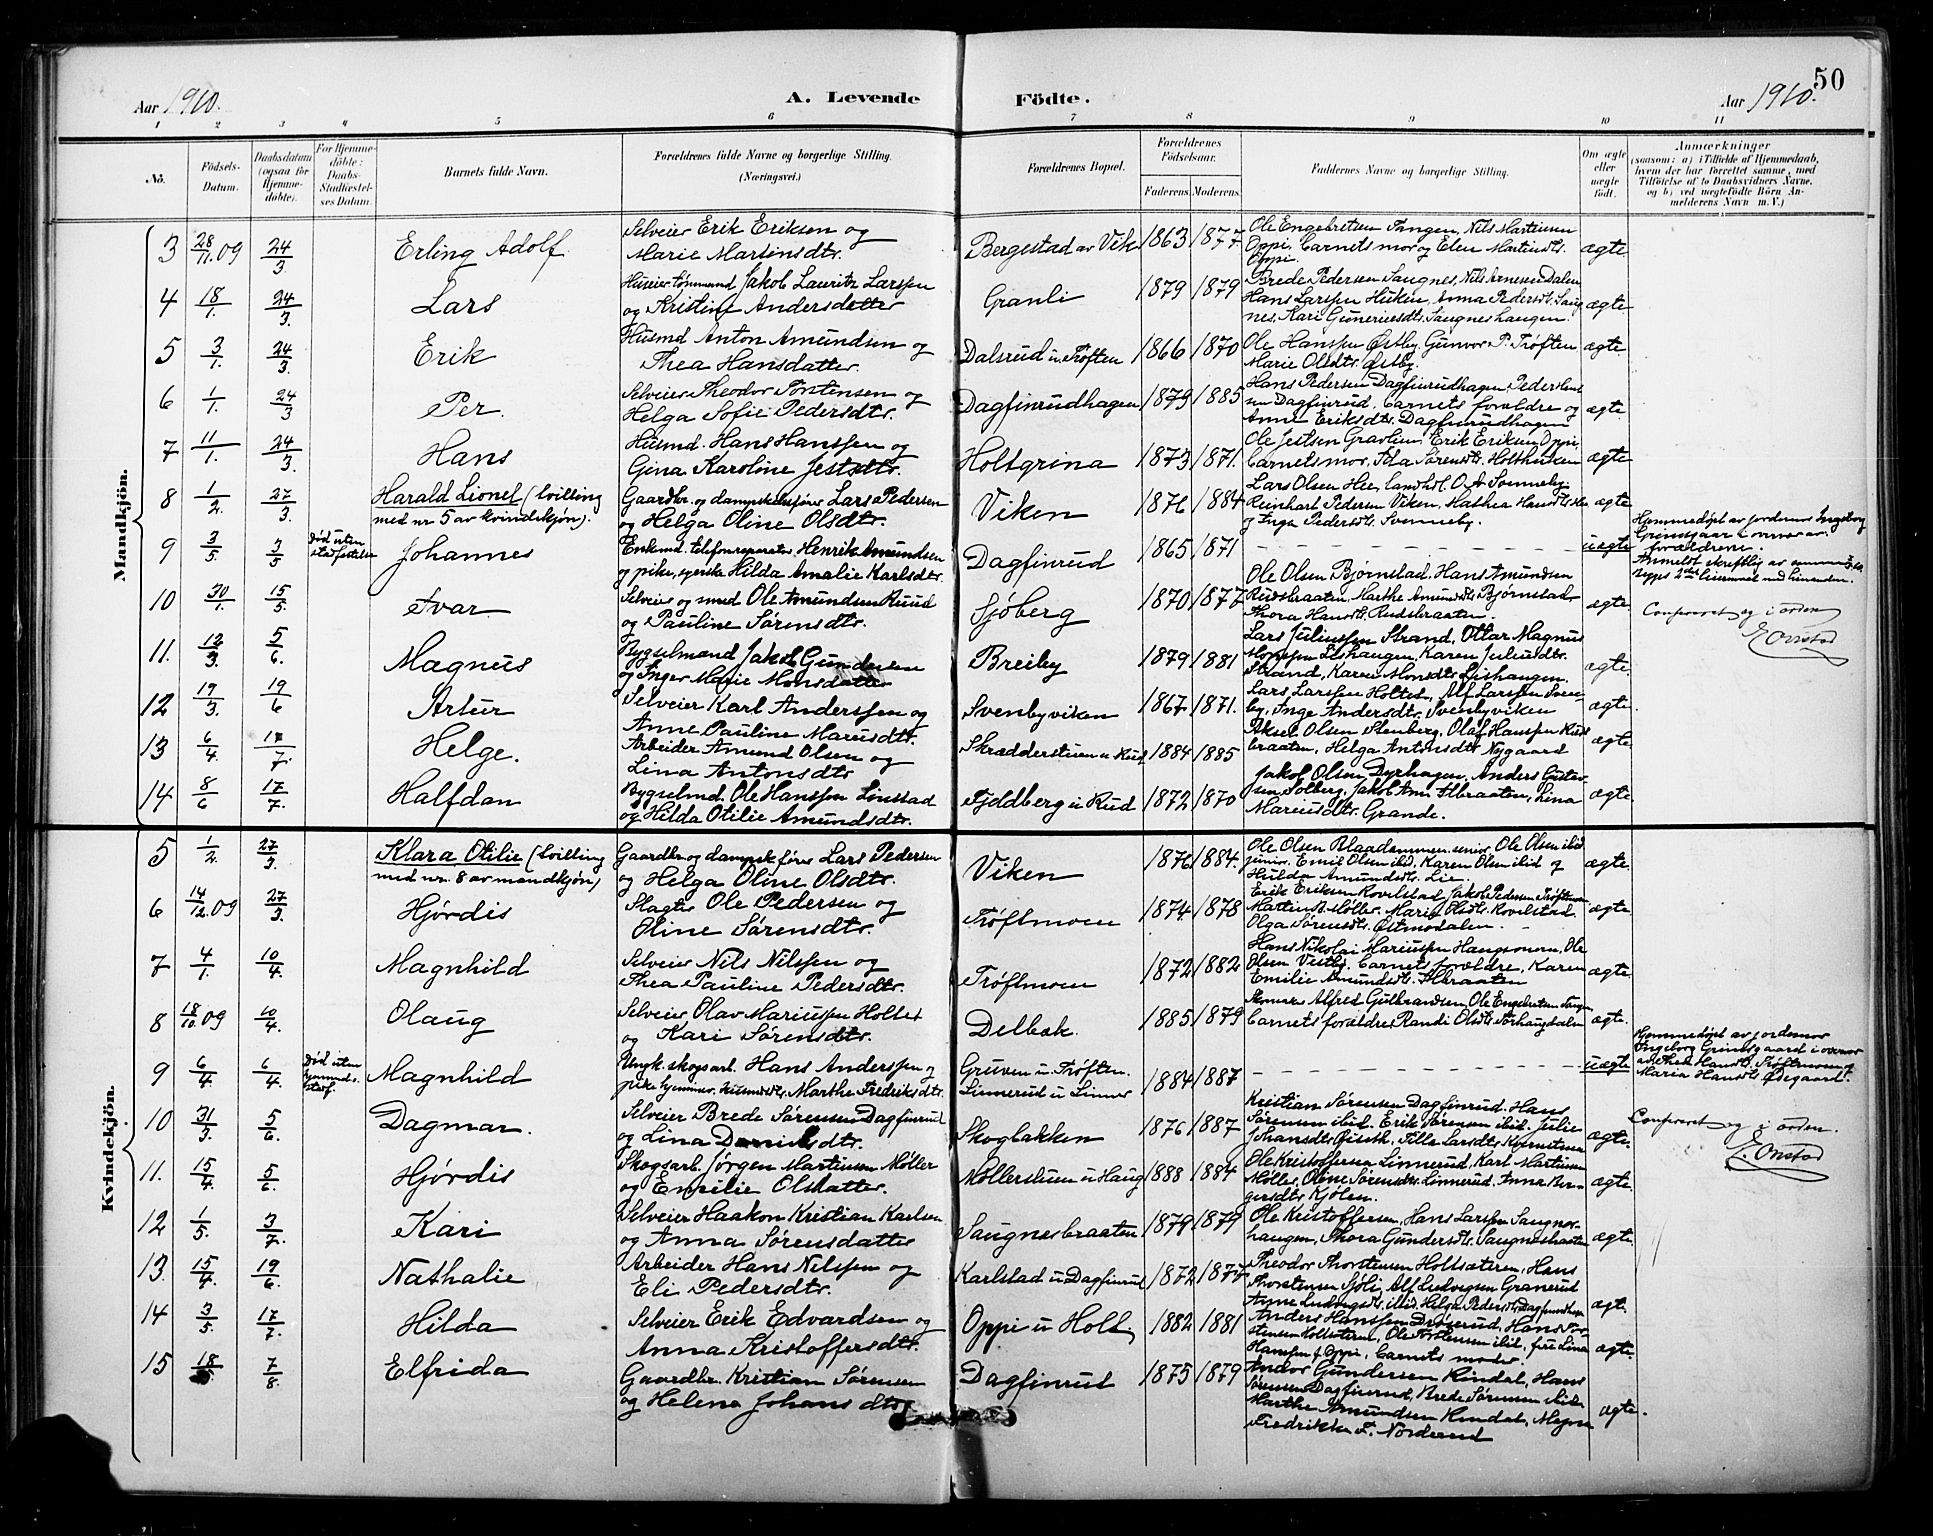 50
Aar 1910.
A. Levende
Födte.
Aar 1910.
1 2 3 4 5 6 7 8 9 10 11
No.
Födsels-
Datum.
Daabsdatum
(ogsaa for
Hjemme-
döbte).
For Hjemme-
döbte:
Daabs-
Stadfæstel-
ses Datum.
Barnets fulde Navn.
Forældrenes fulde Navne og borgerlige Stilling.
(Næringsvei.)
Forældrenes Bopæl.
Forældrenes
Födselsaar.
Faderens. Moderens.
Faddernes Navne og borgerlige Stilling.
Om ægte
eller
uægte
født.
Anmærkninger
(saasom: a) i Tilfælde af Hjemmedaab,
hvem der har forrettet samme, med
Tilföielse af to Daabsvidners Navne,
og b) ved uægtefödte Börn An-
melderens Navn m. V.)
Mandkjön.
3 28/11.09 24/3 Erling Adolf
Selveier Erik Eriksen og
Marie Martinsdtr.
Bergestad av Vik 1863 1877
Ole Engebretsen Tangen, Nils Martinsen
Oppi, barnets mor og Elen Martinsdtr.
Oppi.
ægte
4 18/1. 24/3. Lars
Jakob Lauritz Larssen
og Kristine Andersdatter
Granli 1879 1879
Brede Pedersen Saugnes, Nils Arnesen Dalen
Hans Larssen Anna Pedersdtr. Saug
nes, Kari Guneriusdtr. Saugneshaugen.
ægte
5 3/1. 24/3. Erik
Husmd Anton Amundsen og
Thea Hansdatter.
Dalsrud u. Tröften 1866 1870
Ole Hanssen Østby, Gunvor P. Trøften
Marie Olsdtr. Østby.
ægte
6 1/1. 24/3 Per.
Selveier Theodor og
Helga Sofie Pedersdtr.
Dagfinrudhagen 1879 1885
Hans Pedersen Dagfinrudhagen, Peder
Dagfinrud. barnets foreldre og
Anne Eriksdtr. Dagfinrudhagen
ægte
7 11/1. 24/3. Hans
Husmd. Hans Hanssen og
Gina Karoline Jestsdtr.
Holtgrina 1873 1871.
Ole Jestsen Erik Eriksen Oppi,
barnets mor, Ida Sørensdtr.
ægte
8 1/2. 27/3. Harald Lionel (tvilling
med nr. 5 av kvindekjøn).
Gaardbr. og dampskibsfører Lars Pedersen
og Helga Oline Olsdtr.
Viken 1876 1884
Lars Olsen Hee, landhdl. O. A. Svenneby
Reinhart Pedersen Viken, Mathea Hansdtr.
og Inga Pedersdtr. Svenneby.
ægte
9 3/5. 3/5 Død uten
stadfæstelse
Johannes
Enkemd. Henrik Amundsen
og pike, syerske Hilda Amalie Karlsdtr.
Dagfinrud 1865 1871
uægte
Hjemmedøpt av jordemor Ingeborg
Grindsgaard i overvær av
forældrene.
Anmeldt skriftlig av
10 30/1. 15/5. Ivar
Selveier og smed Ole Amundsen Ruud
og Pauline Sørensdtr.
Sjöberg 1870 1877
Ole Olsen Bjørnstad, Hans Amundsen
Rudsbraaten, Marthe Amundsdtr. Bjørnstad
Thora Hansdtr. Rudsbraaten.
ægte.
Confereret og i orden
E. Onstad
11. 12/3. 5/6. Magnus
Bygselmand Jakob Gundersen
og Inger Marie Monsdatter
Breiby 1879 1881
Lars Juliussen Strand, Ottar Magnus
Monssen Lishaugen, Karen Juliusdtr.
Strand, Karen Monsdtr. Lishaugen.
ægte.
12 19/3. 19/6 Artur
Selveier Karl Anderssen og
Anne Pauline Mariusdtr.
Svenbyviken 1867 1871.
Lars Larssen Holted, Alf Larssen Sven
by, Inga Andersdtr. Svenbyviken
ægte.
13 6/4. 17/7. Helge.
Arbeider Amund Olsen og
Lina Antonsdtr
Skrædderstuen u. Rud 1884 1885
Aksel Olsen Stenberg, Olaf Hanssen Ruds
braaten, Helga Antonsdtr. Nygaard
ægte
14 8/6 17/7. Halfdan
Bygselmd. Ole Hanssen Linstad
og Hilda Otilie Amundsdtr.
Fjeldberg u. Rud 1872 1870
Jakob Olsen Dyrhagen, Anders Gustav
sen Solberg, Jakob Lina
Mariusdtr. Grande.
ægte.
Kvindekjön.
5 1/2. 27/3. Klara Otilie (tvilling
med nr. 8 av mandkjøn)
Gaardbr. og dampsk.fører Lars Pedersen
og Helga Oline Olsdtr.
Viken 1876 1884.
Ole Olsen senior, Ole Olsen ibid
junior, Emil Olsen ibid, Karen Olsen ibid og
Hulda Amundsdtr. Lie.
ægte.
6 14/12.09 27/3. Hjørdis
Slagter Ole Pedersen og
Oline Sørensdtr.
Trøftmoen 1874 1878
Erik Eriksen Rovelstad, Jakob Pedersen Trøftmoen
Martin B. Møller, Marie Olsdtr. Rovelstad
Olga Sørensdtr. Østmodalen.
ægte.
7 4/1. 10/4. Magnhild
Selveier Nils Nilssen og
Thea Pauline Pedersdtr.
Trøftmoen 1872 1882
Hans Nikolai Mariussen Haugsmoen, Ole
Olsen Vestby, barnets forældre, Karen
Emilie Amundsdtr.
ægte.
8 18/10.09 10/4. Olaug
Selveier Olav Mariussen Holtet
og Kari Sørensdtr.
Delbak. 1885 1879
Alfred Gulbrandsen, Ole Engebretsen
barnets forældre, Randi Olsdtr.
ægte.
9 6/4. 6/4. Død uten
stadf.
Magnhild
Ungk. skogsarb. Hans Anderssen og
pike Marthe Fredriksdtr.
Gruven u. Trøften.
Linnerud u. Linnes 1884 1887
uægte
Hjemmedøpt av jordemor
Ingeborg Grindsgaard i overvær
av Thea Hansdtr. Trøftmoen og
Maria Hansdtr. Øsegaard.
10 31/3. 5/6. Dagmar.
Selveier Brede Sørensen Dagfinrud
og Lina
Skogbakken 1876 1887
Kristian Sørensen Dagfinrud. Hans
Sørensen ibid. Erik Sørensen ibid. Julie
Johansdtr. Tilla Larsdtr.
ægte.
Confereret og i orden.
E. Onstad
11. 15/4. 5/6. Hjørdis
Skogsarb. Jørgen Martinsen Møller
og Emilie Olsdatter.
Møllerstuen u. Haug 1888 1884
Ole Kristoffersen Linnerud, Karl Martinsen
Møller, Oline Sørensdtr. Linnerud, Anna Ber-
gersdtr. Kjølen.
ægte.
12 1/5. 3/7. Kari
Selveier Haakon Kristian Karlsen
og Anna Sørensdatter
Saugnesbraaten 1879 1879
Ole Kristoffersen, Hans Larssen Saugnes-
haugen, Thora Gundersdtr. Saugnesbraaten
ægte.
13. 15/4. 19/6. Nathalie
Arbeider Hans Nilssen og
Eli Pedersdtr.
Karlstad u. Dagfinrud 1872 1877
Theodor Thorstensen Holtsæteren, Hans
Thorstensen Sjøli, Alf Ludvigsen Granerud
Anne Ludvigsdtr. ibid. Helga Pedersdtr. Dagfinrudhagen
ægt.
14 3/5. 17/7. Hilda
Selveier Erik Edvardsen og
Anna Kristoffersdtr.
Oppi u. Holt 1882 1881
Anders Hanssen Hans Tor-
stensen Holtsæteren, Ole Torstensen ibid, Lina
Hanssen Oppi, barnets moder.
ægte.
15 18/ 7/8. Elfrida
Gaardbr. Kristian Sørensen
og Helene Johansdtr.
Dagfinrud 1875 1879
Andor Gundersen Rindal, Hans
Sørensen Dagfinrud, Brede Sørensen ibid.
Marthe Amundsen Rindal,
Fredrikke F. Norderud
ægte.